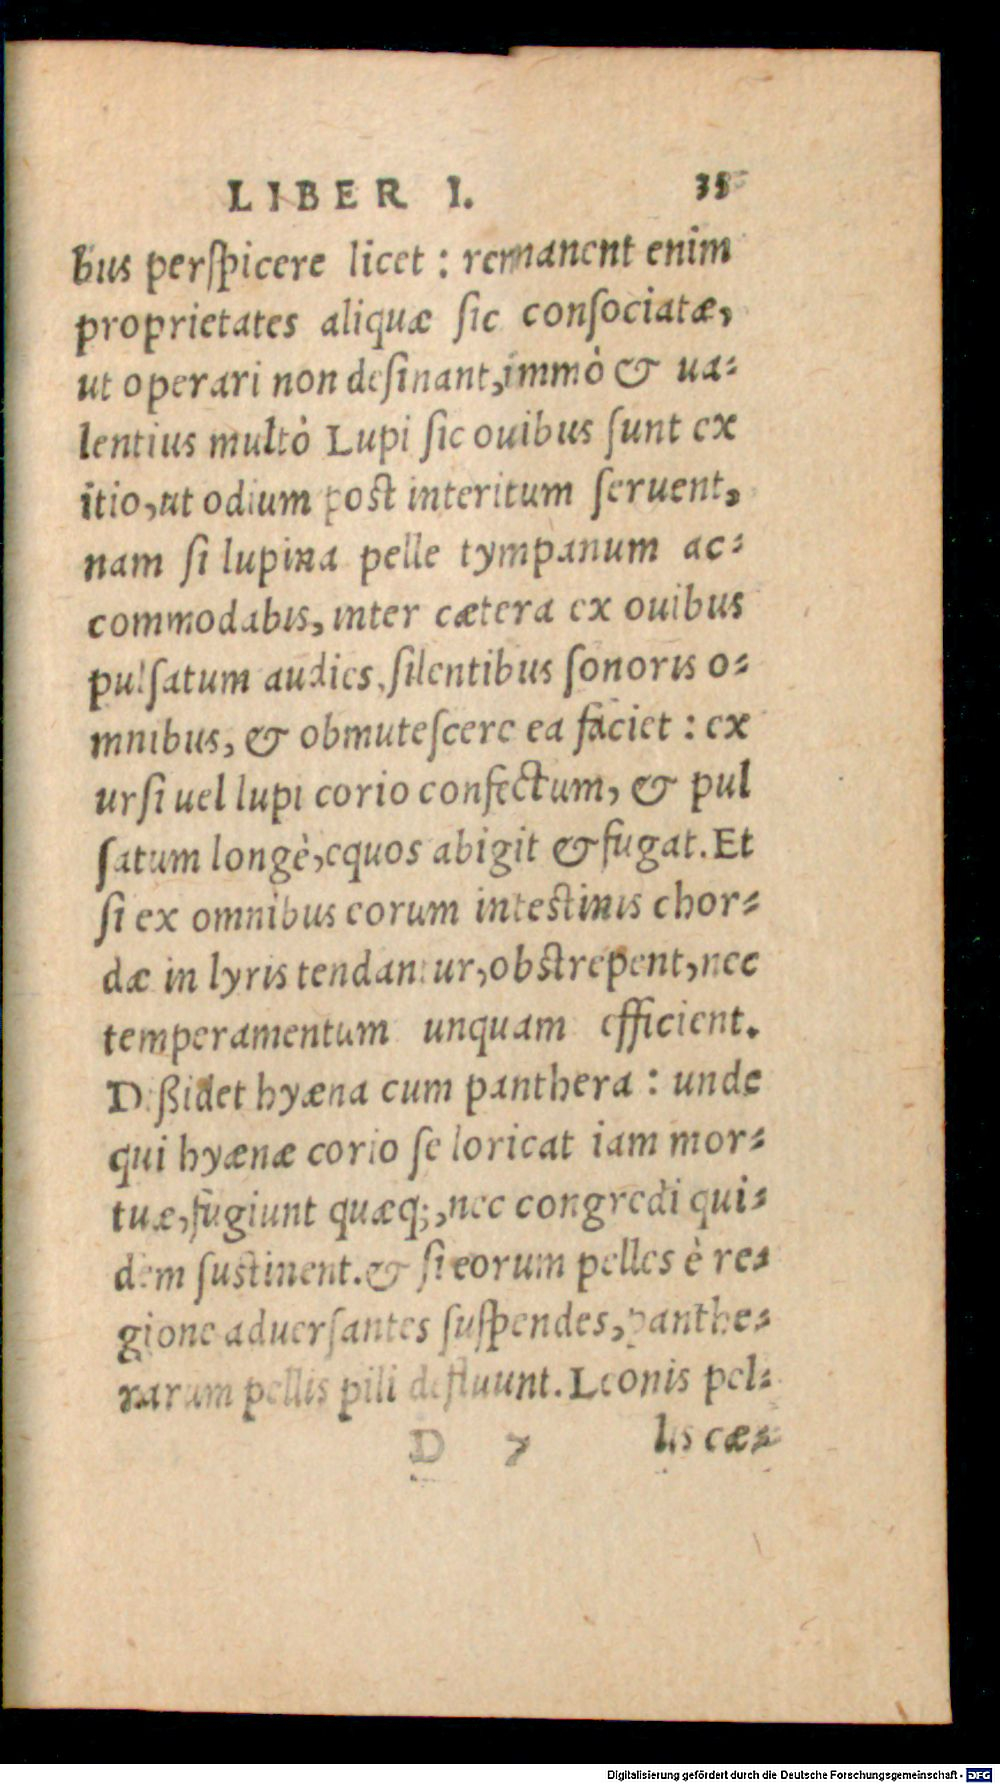 LIBER I. 35
bus perſpicere licet : remanent enim
proprietates aliquæ ſic conſociatæ,
ut operari non deſinant, immò & ua-
lentius multò Lupi ſic ouibus ſunt ex
itio, ut odium post interitum ſeruent,
nam ſi lupina pelle tympanum ac-
commodabis, inter cætera ex ouibus
pulſatum audies, ſilentibus ſonoris o-
mnibus, & obmuteſcere ea faciet : ex
urſi uel lupi corio confectum, & pul
ſatum longè, equos abigit & fugat. Et
ſi ex omnibus eorum intestinis chor-
dæ in lyris tendantur, obstrepent, nec
temperamentum unquam efficient.
Dißidet hyæna cum panthera : unde
qui hyænæ corio ſe loricat iam mor-
tuæ, fugiunt quæq;, nec congredi qui-
dem sustinent. & ſi eorum pelles è re-
gione aduerſantes ſuſpendes, panthe-
rarum pellis pili defluunt. Leonis pel-
D 7 lis cæ-
Digitalisierung gefördert durch die Deutsche Forschungsgemeinschaft - DFG